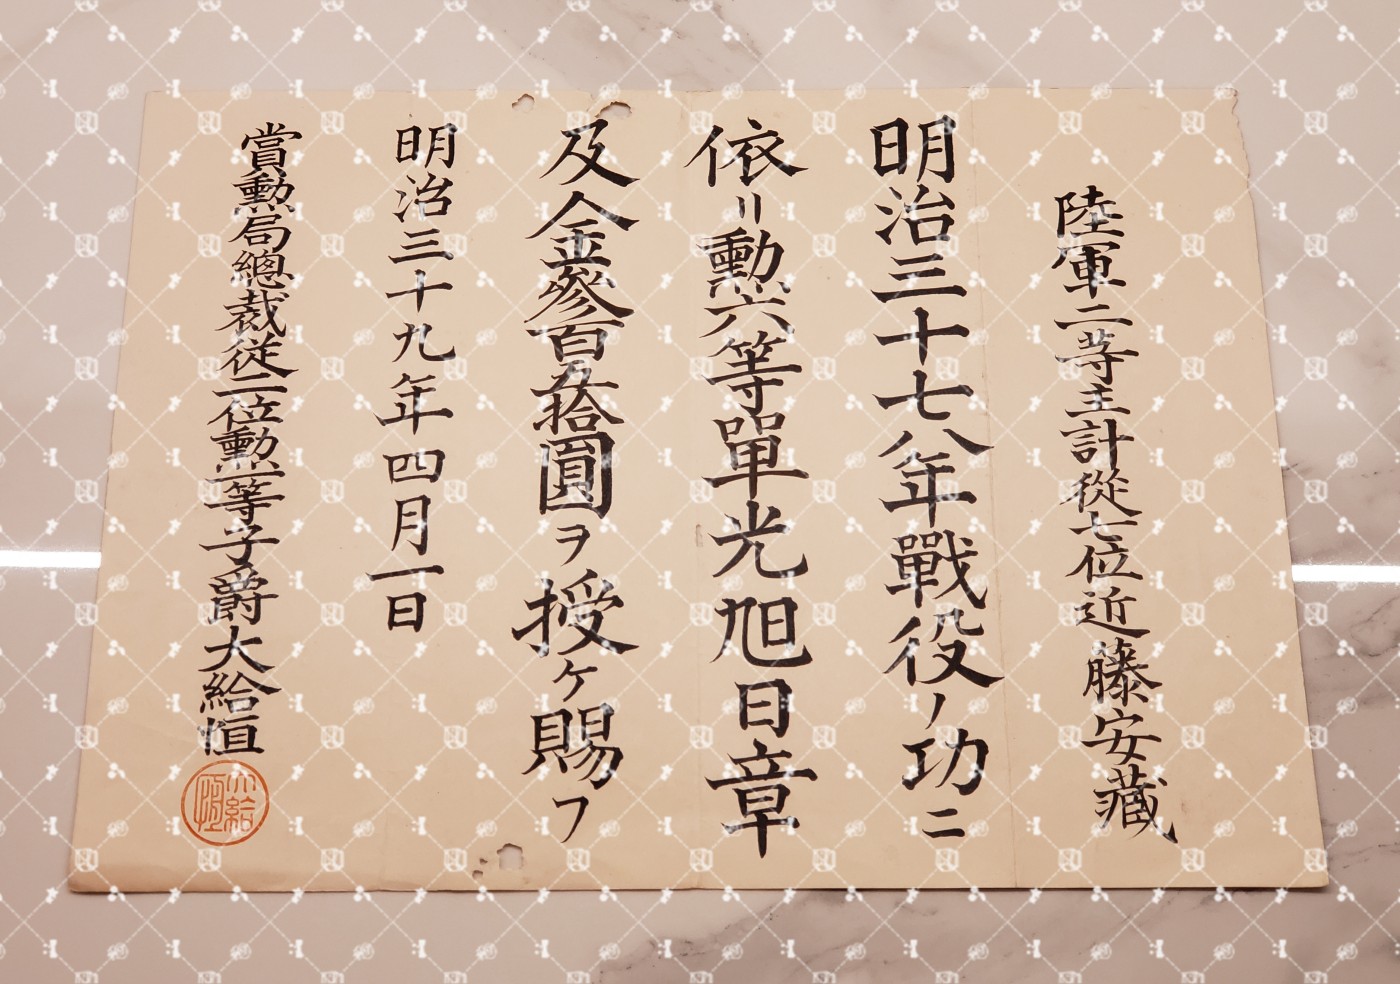 陸軍二等主計從七位近藤安藏
明治三十七八年戰役ノ功ニ
依リ勳六等單光旭日章
及金參百五拾圓ヲ授ケ賜フ
明治三十九年四月一日
賞勳局總裁從二位勳一等子爵大給恒
大給恒